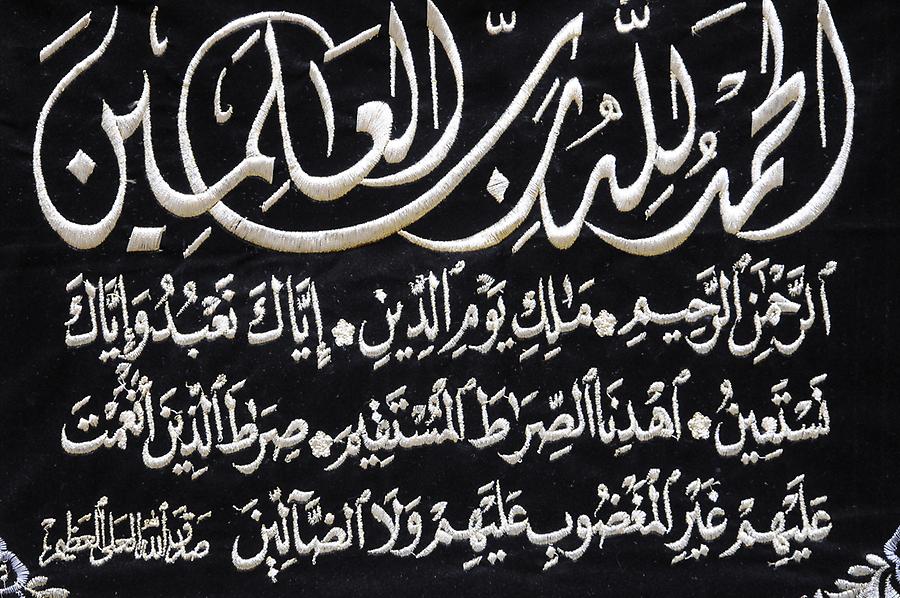 الحمد لله رب العلمين
ٱلرَّحْمَٰنِ ٱلرَّحِيمِ مَٰلِكِ يَوْمِ ٱلدِّينِ إِيَّاكَ نَعْبُدُ وَإِيَّاكَ
نَسْتَعِينُ ٱهْدِنَا ٱلصِّرَاطَ ٱلْمُسْتَقِيمَ صِرَاطَ ٱلَّذِينَ أَنْعَمْتَ
عَلَيْهِمْ غَيْرِ ٱلْمَغْضُوبِ عَلَيْهِمْ وَلَا ٱلضَّآلِّينَ صدق الله العلي العظيم